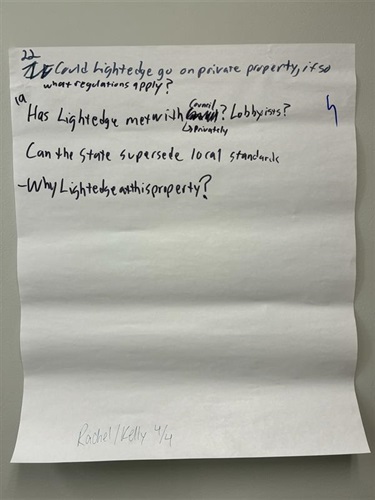 22
Could Lightedge go on private property, if so
what regulations apply?
19
Has Lightedge met with Council? Lobbyists?
↳privately
Can the State supersede local standards
-Why Lightedge at this property?
Rachel/Kelly 4/4